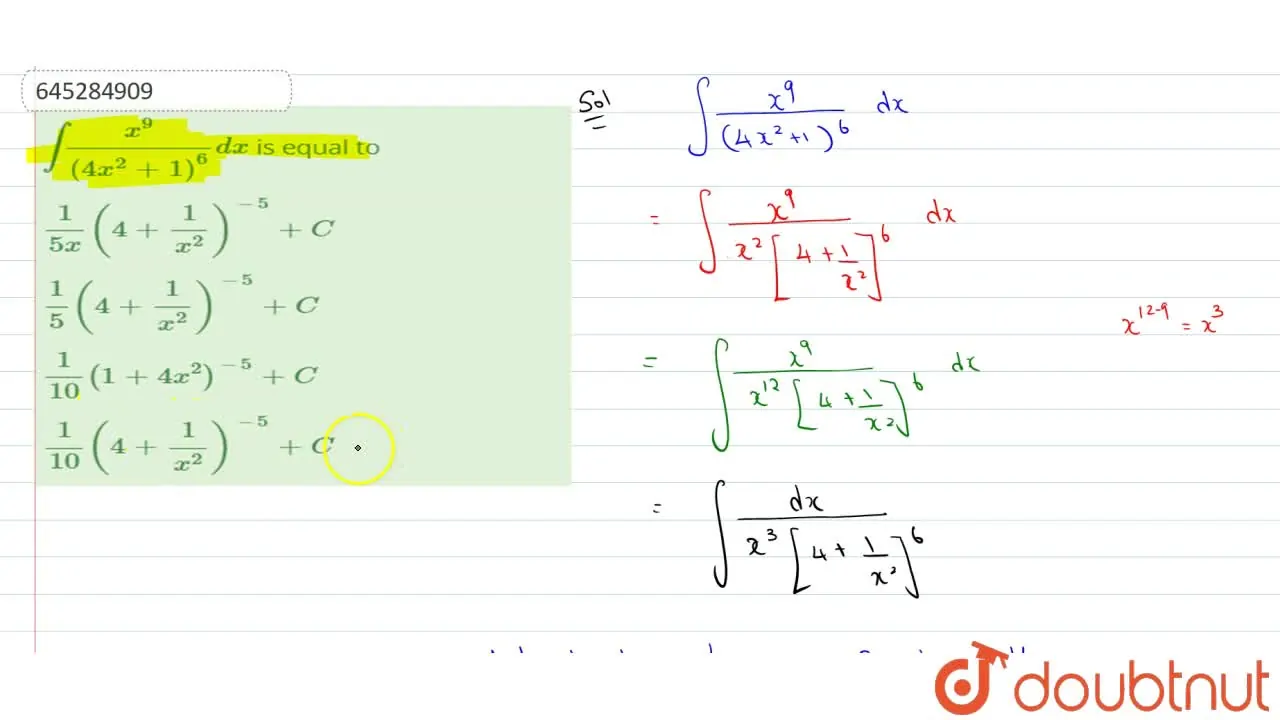 645284909
∫ x^9 / (4x^2 + 1)^6 dx is equal to
1/(5x) (4 + 1/x^2)^-5 + C
1/5 (4 + 1/x^2)^-5 + C
1/10 (1 + 4x^2)^-5 + C
1/10 (4 + 1/x^2)^-5 + C
Sol
∫ x^9 / (4x^2+1)^6 dx
= ∫ x^9 / x^2[4 + 1/x^2]^6 dx
x^12-9 = x^3
= ∫ x^9 / x^12 [4 + 1/x^2]^6 dx
= ∫ dx / x^3 [4 + 1/x^2]^6
doubtnut